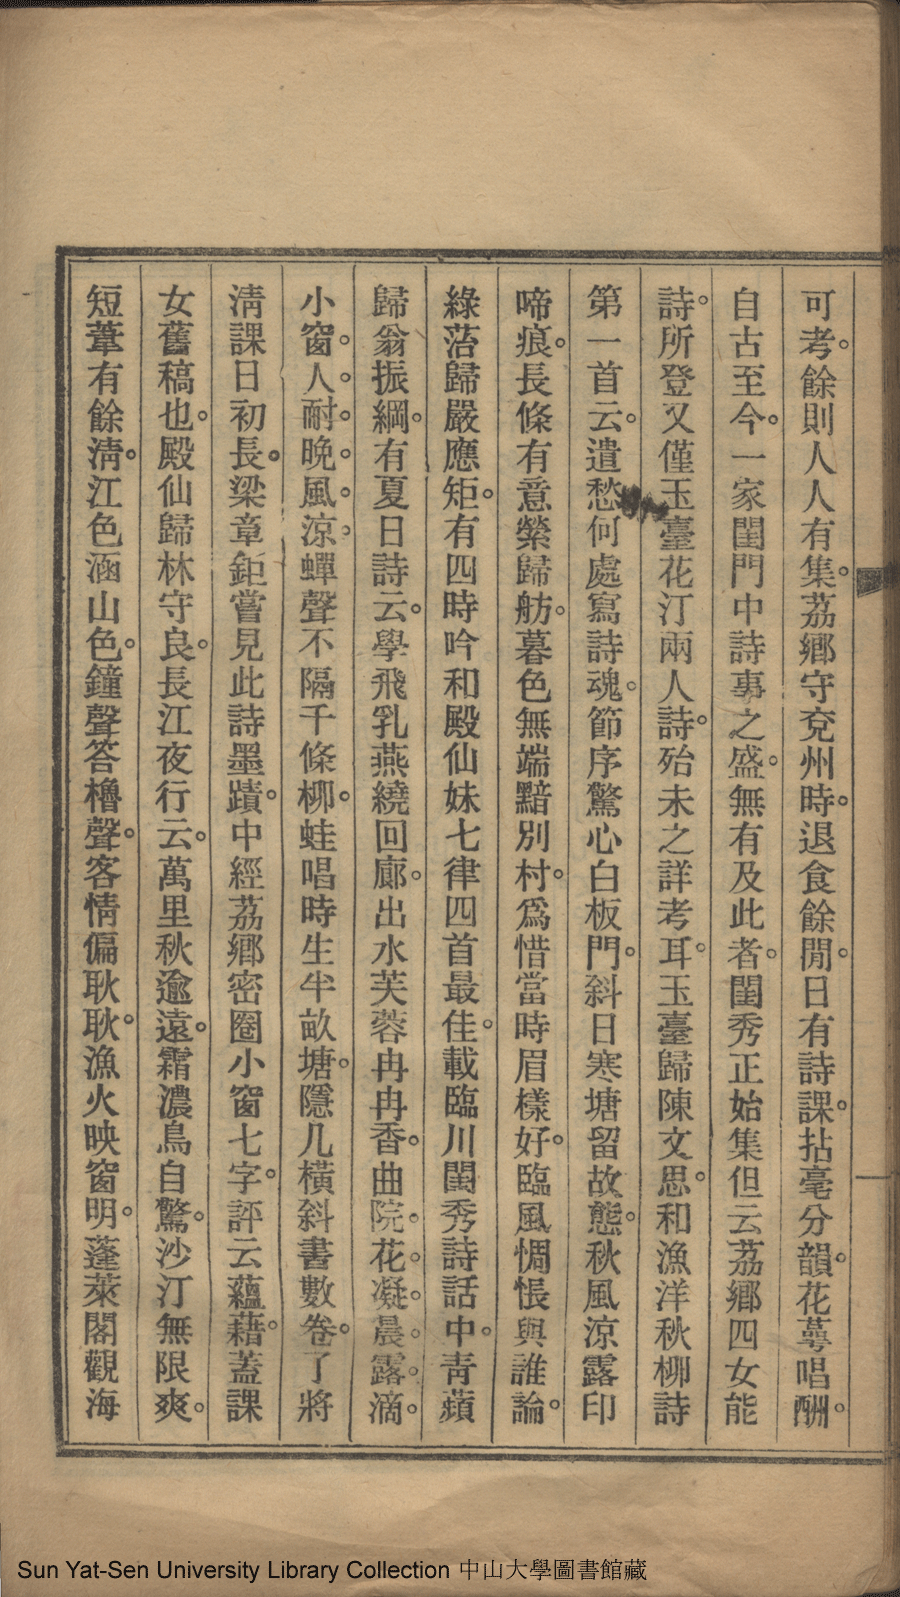 可考。餘則人人有集。荔鄉守兗州時。退食餘閒。日有詩課。拈毫分韻。花萼唱酬。
自古至今。一家閨門中詩事之盛。無有及此者。閨秀正始集但云荔鄉四女能
詩。所登又僅玉臺花汀兩人詩。殆未之詳考耳。玉臺歸陳文思。和漁洋秋柳詩
第一首云。遣愁何處寫詩魂。節序驚心白板門。斜日寒塘留故態。秋風涼露印
啼痕。長條有意縈歸舫。暮色無端黯別村。爲惜當時眉樣好。臨風惆悵與誰論。
綠萿歸嚴應矩。有四時吟和殿仙妹七律四首最佳。載臨川閨秀詩話中。青蘋
歸翁振綱。有夏日詩云。學飛乳燕繞回廊。出水芙蓉冉冉香。曲院。花。凝。晨。露。滴。
小窗。人。耐。晚。風。涼。蟬聲不隔千條柳。蛙唱時生半畝塘。隱几橫斜書數卷。了將
清課日初長。梁章鉅嘗見此詩墨蹟。中經荔鄉密圈小窗七字。評云蘊藉。蓋課
女舊稿也。殿仙歸林守良。長江夜行云。萬里秋逾遠。霜濃鳥自驚。沙汀無限爽。
短葦有餘清。江色涵山色。鐘聲答櫓聲。客情偏耿耿。漁火映窗明。蓬萊閣觀海
Sun Yat-Sen University Library Collection 中山大學圖書館藏